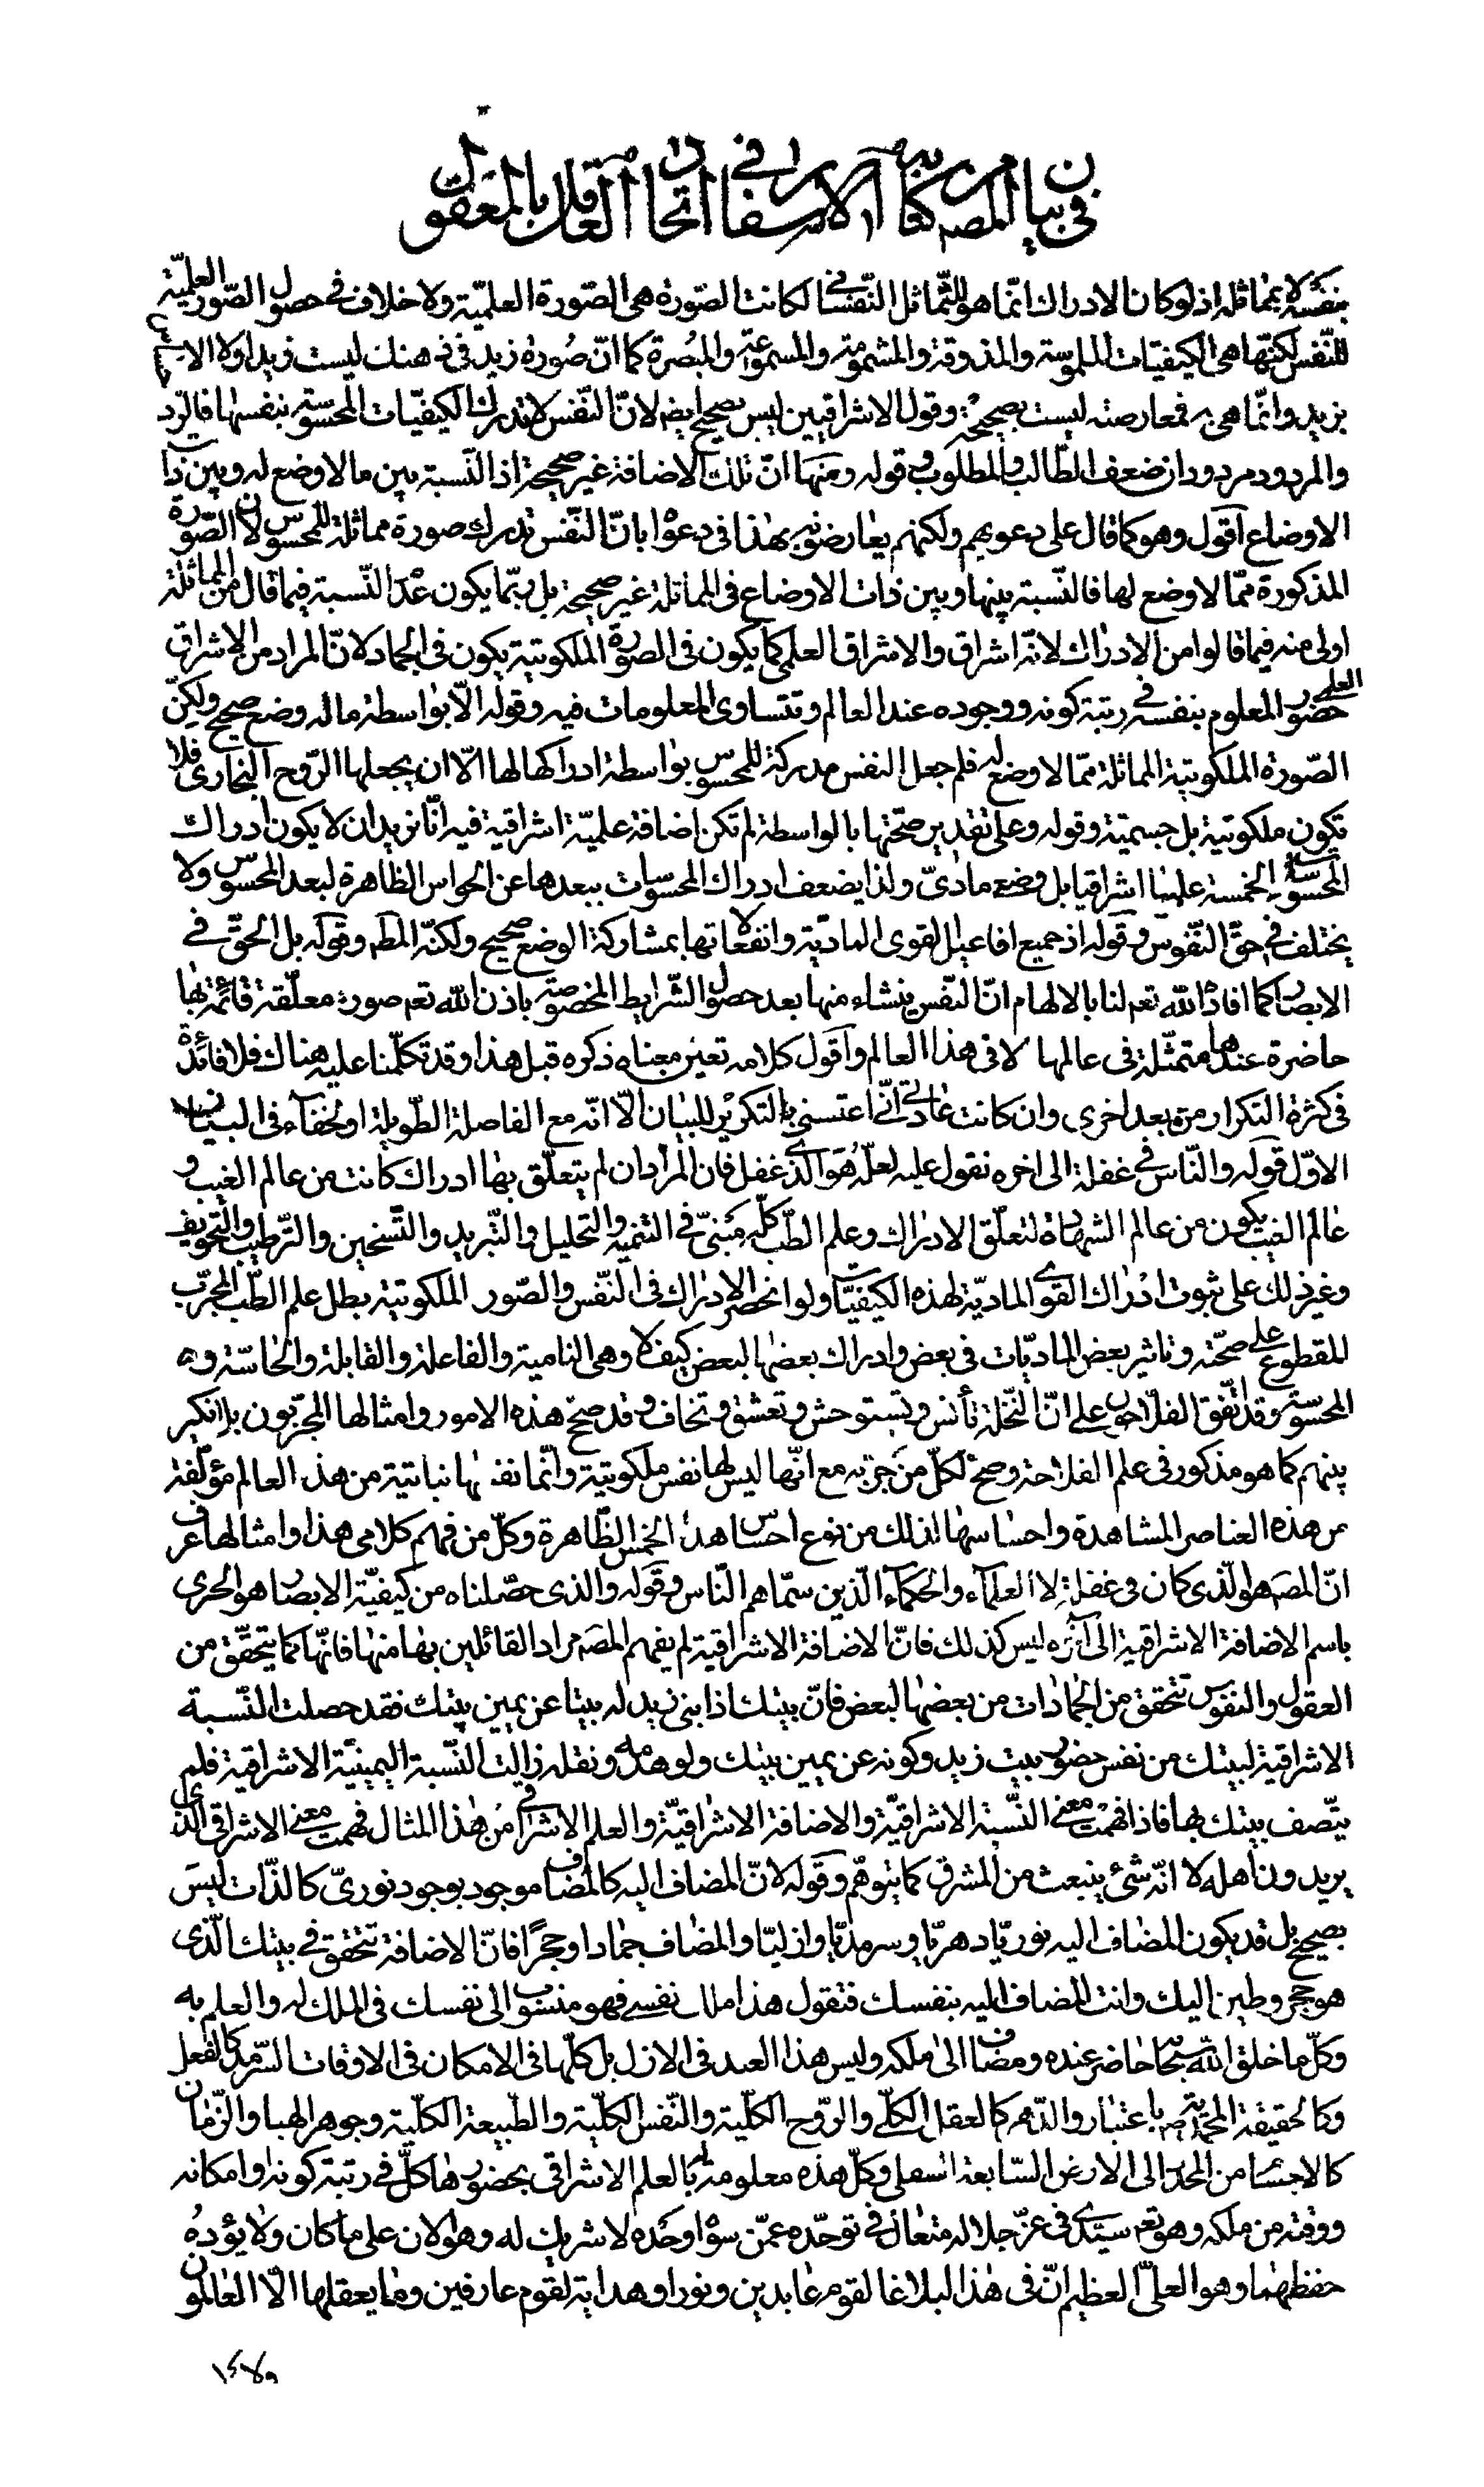 في بيان المصه كتابه الاسفار في اتحاد العاقل بالمعقول
بنفسه لا بمماثله اذ لو كان الادراك انّما هو للتّماثل النّفسانى لكانت الصّورة هى الصّورة العلميّة ولا خلاف في حصول الصّور العلميّة
للنّفس لكنّها هى الكيفيّات الملموسة والمذوقة والمشمومة والمسموعة والمبصرة كما انّ صورة زيد فى ذهنك ليست زيدا ولا
بزيد وانّما هى به فمعارضته ليست بصحيحة وقول الاشراقيين ليس بصحيح ايضا لانّ النّفس لا تدرك الكيفيّات المحسوسة بنفسها فالرّد
والمردود مردودان ضعف الطّالب والمطلوب وقوله ومنها انّ تلك الاضافة غير صحيحة اذ النّسبة بين ما لا وضع له وبين ذات
الاوضاع اقول وهو كما قال على دعويهم ولكنهم يعارضونه بهذا فى دعواه بانّ النّفس تدرك صورة مماثلة للمحسوس لانّ الصّورة
المذكورة ممّا لا وضع لها فالنّسبة بينها وبين ذات الاوضاع فى المماثلة غير صحيحة بل ربّما يكون عدم النّسبة فيما قال من المماثلة
اولى منه فيما قالوا من الادراك لانّه اشراق والاشراق العلمى كما يكون فى الصورة الملكوتية يكون فى الجماد لانّ المراد من الاشراق
العلمى حضور المعلوم بنفسه في رتبة كونه ووجوده عند العالم وتتساوى المعلومات فيه وقوله الّا بواسطة ما له وضع صحيح ولكنّ
الصّورة الملكوتية المماثلة ممّا لا وضع له فلم جعل النفس مدركة للمحسوس بواسطة ادراكها لها الّا ان يجعلها الرّوح البخارى فلا
تكون ملكوتية بل جسميّة وقوله وعلى تقدير صحّتها بالواسطة لم تكن اضافة علميّة اشراقية فيه انّا نريد ان لا يكون ادراك
المحسوسات الخمسة علميا اشراقيا بل وضعى مادّىّ ولذا يضعف ادراك المحسوسات ببعدها عن الحواس الظاهرة لبعد المحسوس ولا
يختلف في حقّ النّفوس وقوله اذ جميع افاعيل القوى المادّيّة وانفعالاتها بمشاركة الوضع صحيح ولكنّه المطم وقوله بل الحقّ في
الابصار كما افاده الله تعم لنا بالالهام انّ النّفس ينشاء منها بعد حصول الشّرايط المخصوصة باذن الله تعم صورة معلّقة قائمة بها
حاضرة عندها متمثّلة فى عالمها لا فى هذا العالم واقول كلامه تعين معناه ذكره قبل هذا وقد تكلّمنا عليه هناك فلا فائدة
فى كثرة التكرار مرة بعد اخرى وان كانت عادتى انّى اعتنى بالتكرير للبيان الّا انّه مع الفاصلة الطّويلة او لخفآء فى البيان
الاوّل قوله والنّاس في غفلة الى اخره نقول عليه لعلّه هو الّذى غفل فان المراد ان لم يتعلّق بها ادراك كانت من عالم الغيب و
عالم الغيب يكون من عالم الشهادة لتعلّق الادراك وعلم الطّب كلّه مبنىّ في التنمية والتحليل والتّبريد والتّسخين والتّرطيب والتجويف
وغير ذلك على ثبوت ادراك القوى المادّيّة لهذه الكيفيّات ولو انحصر الادراك فى النّفس والصّور الملكوتية بطل علم الطّب المجرّب
المقطوع على صحّته وتاثير بعض المادّيّات فى بعض وادراك بعضها لبعض كيف لا وهى النامية والفاعلة والقابلة والحاسّة و
المحسوسة وقد اتّفق الفلّاحون على انّ النّخلة تأنس وتستوحش وتعشق وتخاف وقد صحّ هذه الامور وامثالها المجرّبون بلا نكير
بينهم كما هو مذكور فى علم الفلاحة وصحّ لكلّ من جرّبه مع انّها ليس لها نفس ملكوتية وانّما نفسها نباتية من هذا العالم مؤلّفة
من هذه العناصر المشاهدة واحساسها لذلك من نوع احساس هذه الخمس الظّاهرة وكلّ من فهم كلامى هذا وامثالها عرف
انّ المصه هو الّذى كان فى غفلة لا العلمآء والحكمآء الّذين سمّاهم النّاس وقوله والذى حصّلناه من كيفيّة الابصار هو الحرى
باسم الاضافة الاشراقية الى آخره ليس كذلك فانّ الاضافة الاشراقية لم يفهم المصه مراد القائلين بها منها فانّها كما يتحقّق من
العقول والنفوس تتحقق من الجمادات من بعضها لبعض فانّ بيتك اذا بنى زيد له بيتا عن يمين بيتك فقد حصلت النّسبة
الاشراقية لبيتك من نفس حضور بيت زيد وكونه عن يمين بيتك ولو هدمه ونقله زالت النّسبة اليمينيّة الاشراقية فلم
يتّصف بيتك بها فاذا فهمت معنى النّسبة الاشراقيّة والاضافة الاشراقيّة والعلم الاشراقى من هذا المثال فهمت معنى الاشراقى الّذى
يريدون اهله لا انّه شئ ينبعث من المشرق كما يتوهّم وقوله لانّ المضاف اليه كالمضاف موجود بوجود نورىّ كالذّات ليس
بصحيح بل قد يكون المضاف اليه نوريّا دهريّا وسرمديّا وازليّا والمضاف جمادا وحجرا فانّ الاضافة تتحقق في بيتك الّذى
هو حجر وطين اليك وانت المضاف اليه بنفسك فتقول هذا ملك نفسى فهو منسوب الى نفسك فى الملك له والعلم به
وكلّ ما خلق الله سبحانه حاضر عنده ومضاف الى ملكه وليس هذا العبد فى الازل بل كلّها فى الامكان فى الاوقات السّرمد كالفعل
وكالحقيقة المحمّدية صه باعتبار والدّهر كالعقل الكلّى والرّوح الكلّية والنّفس الكلّية والطّبيعة الكلّية وجوهر الهبا والزّمان
كالاجسام من المحدّد الى الارض السّابعة السفلى وكلّ هذه معلومة له بالعلم الاشراقى بحضورها كلّ في رتبة كونه او امكانه
ووقته من ملكه وهو تعم سيّدى فى عزّ جلاله متعال في توحّده عمّن سواه وحده لا شريك له وهو الان على ما كان ولا يؤده
حفظهما وهو العلىّ العظيم انّ فى هذا لبلاغا لقوم عابدين ونورا وهداية لقوم عارفين وما يعقلها الّا العالمون